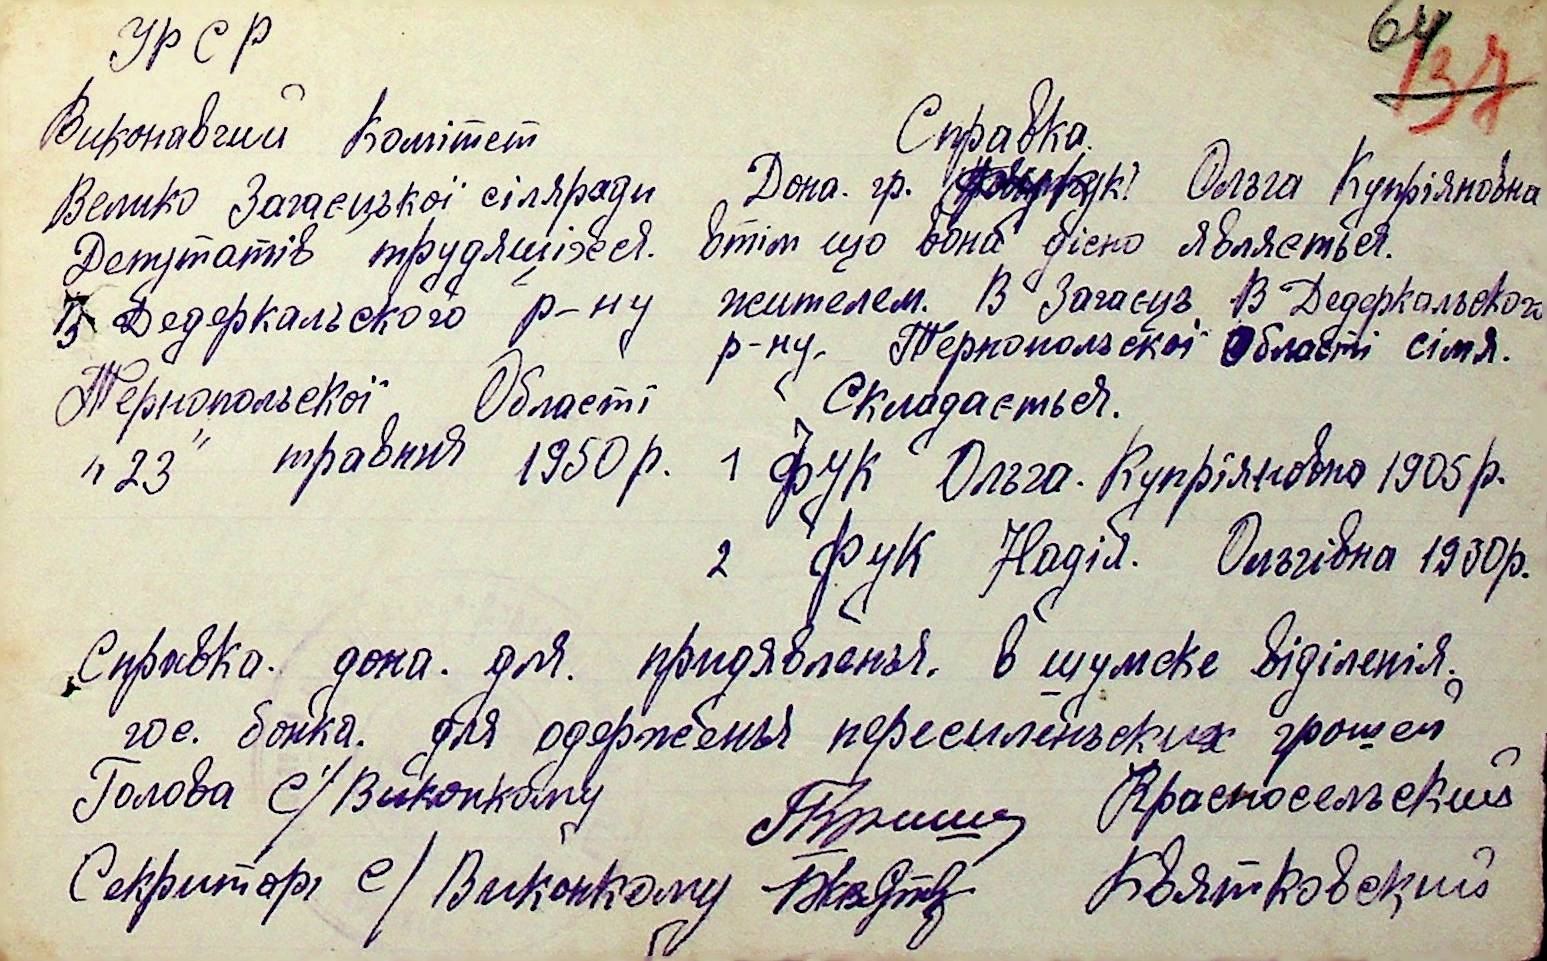 64
137
УРСР
Виконавчий Комітет
Велико Загаєцької сілляради
Депутатів трудящіхся.
В Дедеркальського р-ну
Тернопольскої Області
"23" травня 1950 р.
Справка.
Дона. гр. Ольга Купріяновна
втім що вона дісно являється.
жителем. В Загаєць В Дедеркальського
р-ну. Тернопольскої Області сімя.
Складається.
1 Фук Ольга. Купріяновна 1905 р.
2 Фук Надія. Ольгівна 1930 р.
Справка. дона. для. придявленья. в шумске віділенія.
гос. бонка. для одержбенья пересиленьских грошей
Голова С/Виконкому Красносельский
Секритарь С/Виконкому Квятковский